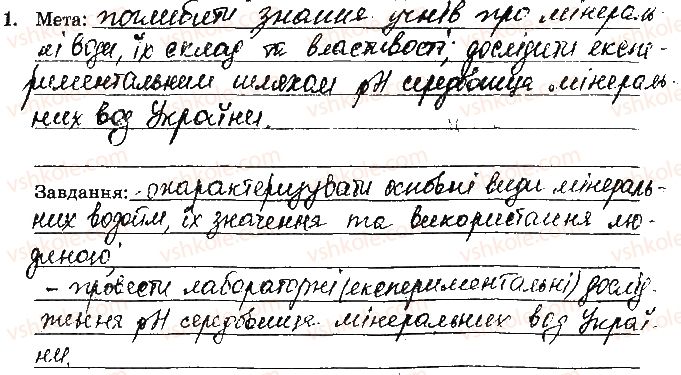 1. Мета: поглибити знання учнів про мінераль-
ні води, їх склад та властивості; дослідити експе-
риментальним шляхом pH середовища мінераль-
них вод України.
Завдання: - охарактеризувати основні види мінераль-
них водойм, їх значення та використання лю-
диною;
- провести лабораторні (експериментальні) дослід-
ження pH середовища мінеральних вод Украї-
ни.